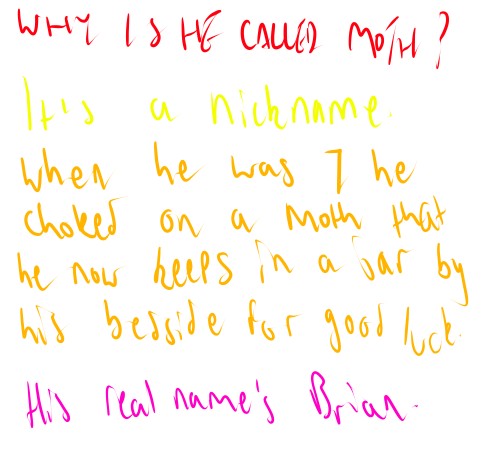 WHY IS HE CALLED MOTH?
It's a nickname.
When he was 7 he
choked on a moth that
he now keeps in a jar by
his bedside for good luck.
His real name's Brian.